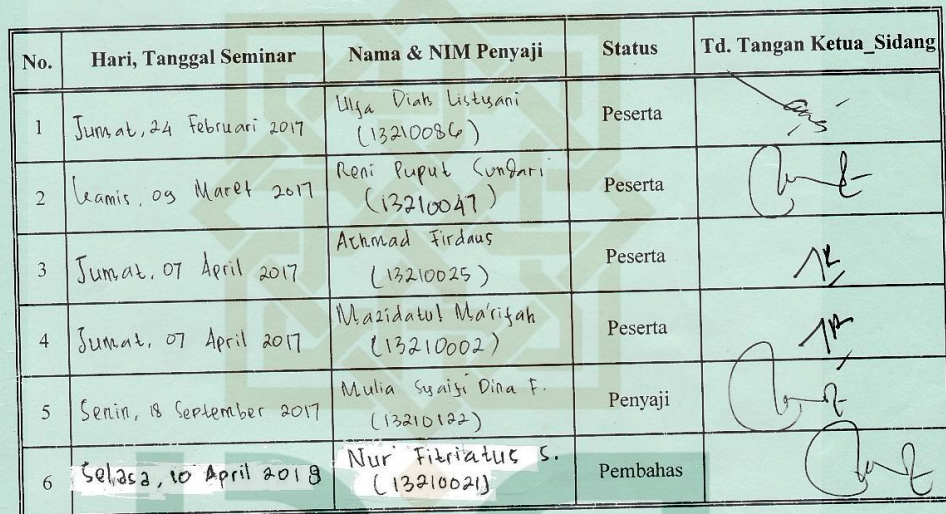 No. Hari, Tanggal Seminar Nama & NIM Penyaji Status Td. Tangan Ketua_Sidang
1 Jumat, 24 Februari 2017 Ulfa Diah Listyani (13210086) Peserta
2 Kamis, 09 Maret 2017 Reni Puput Sundari (13210047) Peserta
3 Jumat, 07 April 2017 Achmad Firdaus (13210025) Peserta
4 Jumat, 07 April 2017 Mazidatul Ma'rifah (13210002) Peserta
5 Senin, 18 September 2017 Mulia Syaifi Dina F. (13210122) Penyaji
6 Selasa, 10 April 2018 Nur Fitriatus S. (13210021) Pembahas